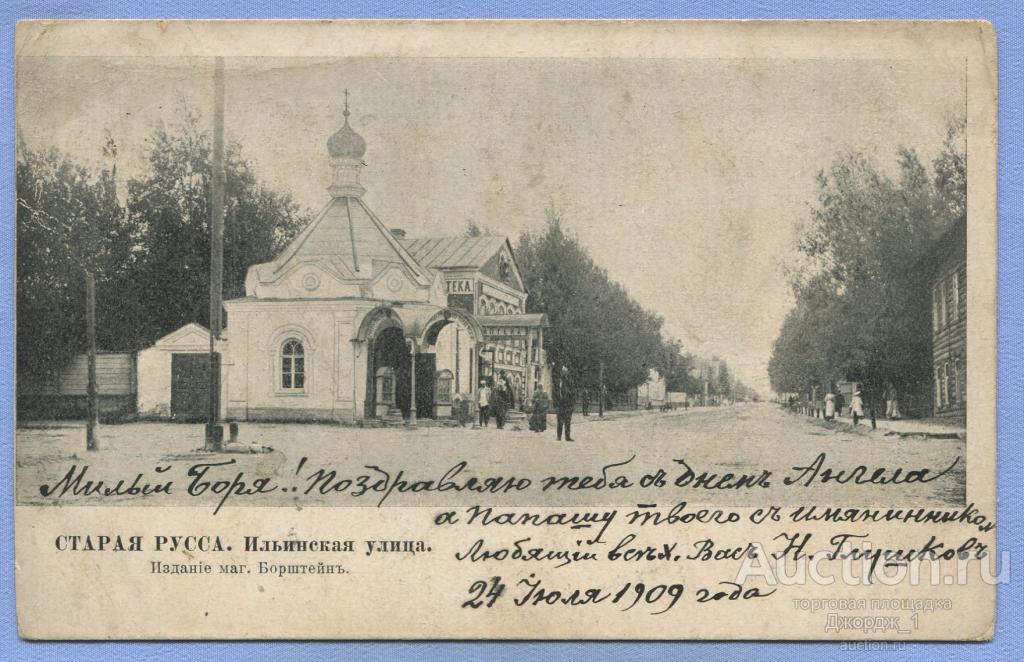 ТЕКА.
Милый Боря!! Поздравляю тебя съ Днемъ Ангела
а Папашу твоего съ имянинникомъ
СТАРАЯ РУССА. Ильинская улица.
Любящій всѣх. Васъ Н. Глушковъ
Изданіе маг. Борштейнъ.
24 Июля 1909 года
Auction.ru
торговая площадка
Джордж_1
auction.ru